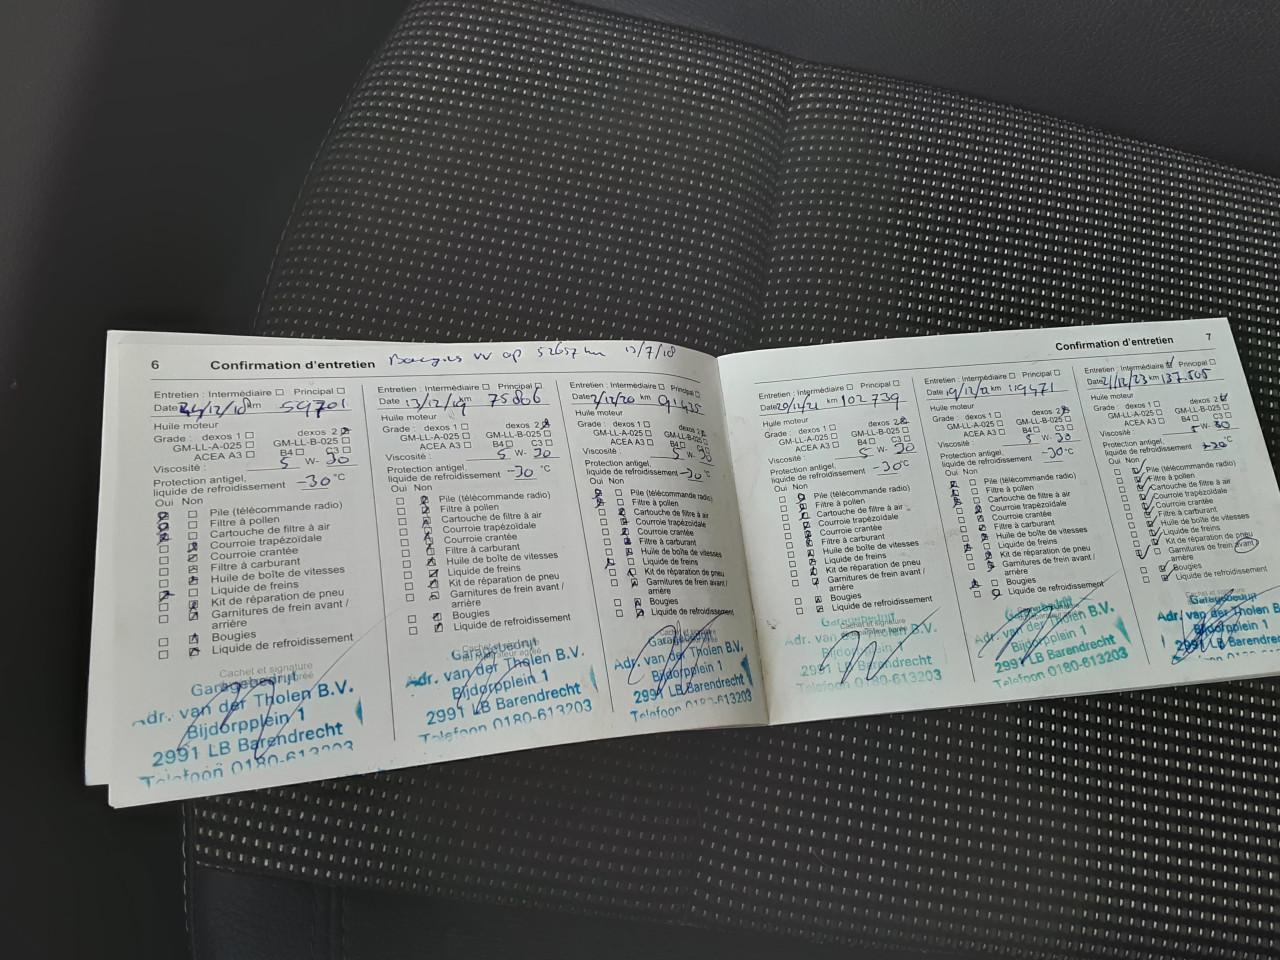 6 Confirmation d'entretien
Entretien : Intermédiaire ☐ Principal ☐
Date 24/12/18 km 59701
Huile moteur
Grade : dexos 1 ☐ dexos 2 ☒
GM-LL-A-025 ☐ GM-LL-B-025 ☐
ACEA A3 ☐ B4 ☐ C3 ☐
Viscosité : 5 W- 30
Protection antigel,
liquide de refroidissement -30 °C
Oui Non
Pile (télécommande radio)
Filtre à pollen
Cartouche de filtre à air
Courroie trapézoïdale
Courroie crantée
Filtre à carburant
Huile de boîte de vitesses
Liquide de freins
Kit de réparation de pneu
Garnitures de frein avant /
arrière
Bougies
Liquide de refroidissement
Cachet et signature
Garagebedrijf
Adr. van der Tholen B.V.
Bijdorpplein 1
2991 LB Barendrecht
Telefoon 0180-613203
Entretien : Intermédiaire ☐ Principal ☐
Date 13/12/19 km 75806
Huile moteur
Grade : dexos 1 ☐ dexos 2 ☒
GM-LL-A-025 ☐ GM-LL-B-025 ☐
ACEA A3 ☐ B4 ☐ C3 ☐
Viscosité : 5 W- 30
Protection antigel,
liquide de refroidissement -30 °C
Oui Non
Pile (télécommande radio)
Filtre à pollen
Cartouche de filtre à air
Courroie trapézoïdale
Courroie crantée
Filtre à carburant
Huile de boîte de vitesses
Liquide de freins
Kit de réparation de pneu
Garnitures de frein avant /
arrière
Bougies
Liquide de refroidissement
Garagebedrijf
Adr. van der Tholen B.V.
Bijdorpplein 1
2991 LB Barendrecht
Telefoon 0180-613203
Entretien : Intermédiaire ☐ Principal ☐
km 91435
Huile moteur
Grade : dexos 1 ☐ dexos 2 ☒
GM-LL-A-025 ☐ GM-LL-B-025 ☐
ACEA A3 ☐ B4 ☐ C3 ☐
Viscosité : 5 W- 30
Protection antigel,
liquide de refroidissement -30 °C
Oui Non
Pile (télécommande radio)
Filtre à pollen
Cartouche de filtre à air
Courroie trapézoïdale
Courroie crantée
Filtre à carburant
Huile de boîte de vitesses
Liquide de freins
Kit de réparation de pneu
Garnitures de frein avant /
arrière
Bougies
Liquide de refroidissement
Garagebedrijf
Adr. van der Tholen B.V.
Bijdorpplein 1
2991 LB Barendrecht
Telefoon 0180-613203
Confirmation d'entretien 7
Entretien : Intermédiaire ☐ Principal ☐
Date 20/12/21 km 102739
Huile moteur
Grade : dexos 1 ☐ dexos 2 ☒
GM-LL-A-025 ☐ GM-LL-B-025 ☐
ACEA A3 ☐ B4 ☐ C3 ☐
Viscosité : 5 W- 30
Protection antigel,
liquide de refroidissement -30 °C
Oui Non
Pile (télécommande radio)
Filtre à pollen
Cartouche de filtre à air
Courroie trapézoïdale
Courroie crantée
Filtre à carburant
Huile de boîte de vitesses
Liquide de freins
Kit de réparation de pneu
Garnitures de frein avant /
arrière
Bougies
Liquide de refroidissement
Cachet et signature
Garagebedrijf
Adr. van der Tholen B.V.
Bijdorpplein 1
2991 LB Barendrecht
Telefoon 0180-613203
Entretien : Intermédiaire ☐ Principal ☐
Date 19/12/22 km 119471
Huile moteur
Grade : dexos 1 ☐ dexos 2 ☒
GM-LL-A-025 ☐ GM-LL-B-025 ☐
ACEA A3 ☐ B4 ☐ C3 ☐
Viscosité : 5 W- 30
Protection antigel,
liquide de refroidissement -30 °C
Oui Non
Pile (télécommande radio)
Filtre à pollen
Cartouche de filtre à air
Courroie trapézoïdale
Courroie crantée
Filtre à carburant
Huile de boîte de vitesses
Liquide de freins
Kit de réparation de pneu
Garnitures de frein avant /
arrière
Bougies
Liquide de refroidissement
Garagebedrijf
Adr. van der Tholen B.V.
Bijdorpplein 1
2991 LB Barendrecht
Telefoon 0180-613203
Entretien : Intermédiaire ☒ Principal ☐
Date 21/12/23 km 137.505
Huile moteur
Grade : dexos 1 ☐ dexos 2 ☑
GM-LL-A-025 ☐ GM-LL-B-025 ☐
ACEA A3 ☐ B4 ☐ C3 ☐
Viscosité : 5 W- 30
Protection antigel,
liquide de refroidissement °C
Oui Non
Pile (télécommande radio)
Filtre à pollen
Cartouche de filtre à air
Courroie trapézoïdale
Courroie crantée
Filtre à carburant
Huile de boîte de vitesses
Liquide de freins
Kit de réparation de pneu
Garnitures de frein avant /
arrière
Bougies
Liquide de refroidissement
Garagebedrijf
Adr. van der Tholen B
Bijdorpplein 1
2991 LB Barendre